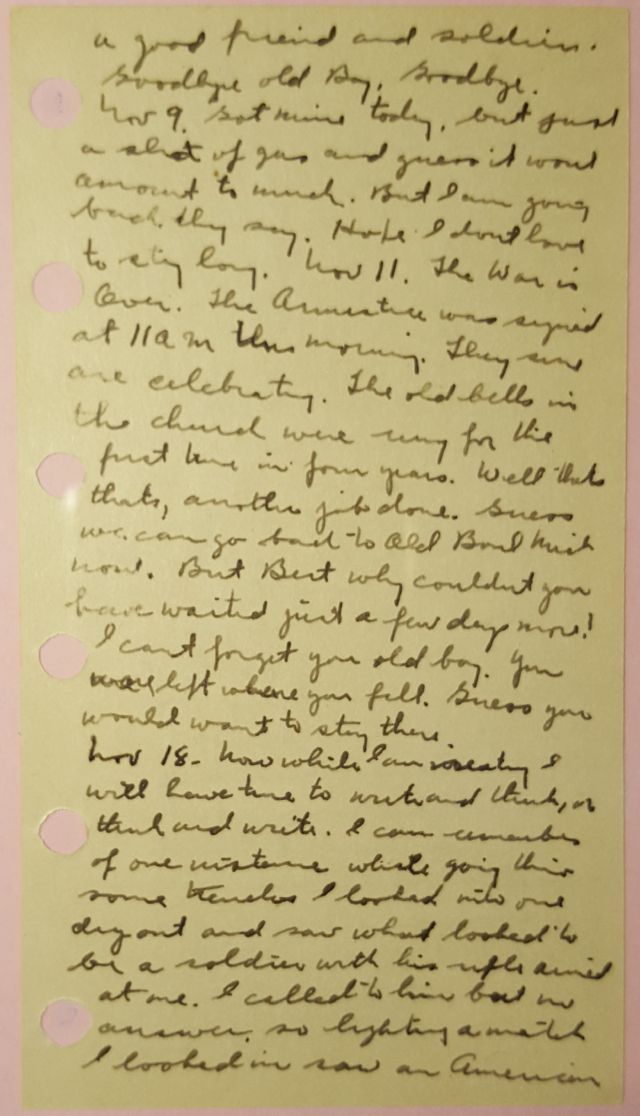 a good friend and soldier.
Goodbye old Boy, Goodbye.
Nov 9. Got mine today, but just
a shot of gas and guess it wont
amount to much. But I am going
back they say. Hope I dont have
to stay long. Nov 11. The War is
Over. The Armistice was signed
at 11 am this morning. They sure
are celebrating. The old bells in
the church were rung for the
first time in four years. Well thats
thats, another job done. Guess
we can go back to Old
now. But Bert why couldnt you
have waited just a few days more!
I cant forget you old boy. You
were left where you fell. Guess you
would want to stay there.
Nov 18 - Now while I am I
will have time to write and think, or
think and write. I can remember
of one instance while going thru
some trenches I looked into one
dugout and saw what looked to
be a soldier with his rifle aimed
at me. I called to him but no
answer, so lighting a match
I looked in saw an American